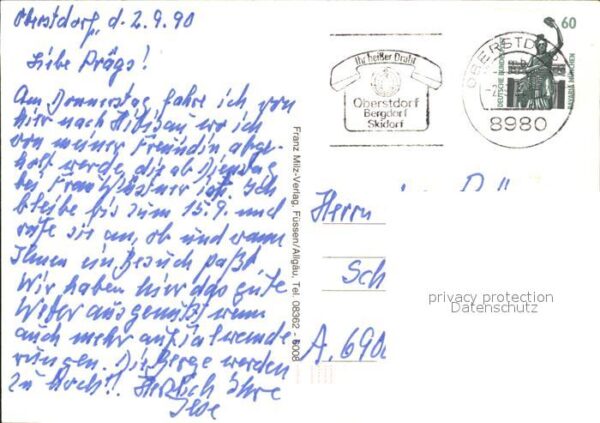 Oberstdorf, d. 2.9.90
Liebe Prägs!
Am Donnerstag fahre ich von
hier nach Hittisau wo ich
von meiner Freundin abge-
holt werde, die ab Dienstag
bei Frau Wüstner ist. Ich
bleibe bis zum 15.9. und
rufe sie an, ob und wann
Ihnen ein Besuch paßt
Wir haben hier das gute
Wetter ausgenützt wenn
auch mehr auf
rungen. Die Berge werden
zu hoch!! Herzlich Ihre
Ilse
Franz Milz-Verlag, Füssen/Allgäu, Tel. 08362 - 6008
Ihr heißer Draht
Oberstdorf
Bergdorf
Skidorf
OBERSTDORF
8980
60
DEUTSCHE BUNDESPOST
BAVARIA MÜNCHEN
Herrn
Sch
A. 690
privacy protection
Datenschutz